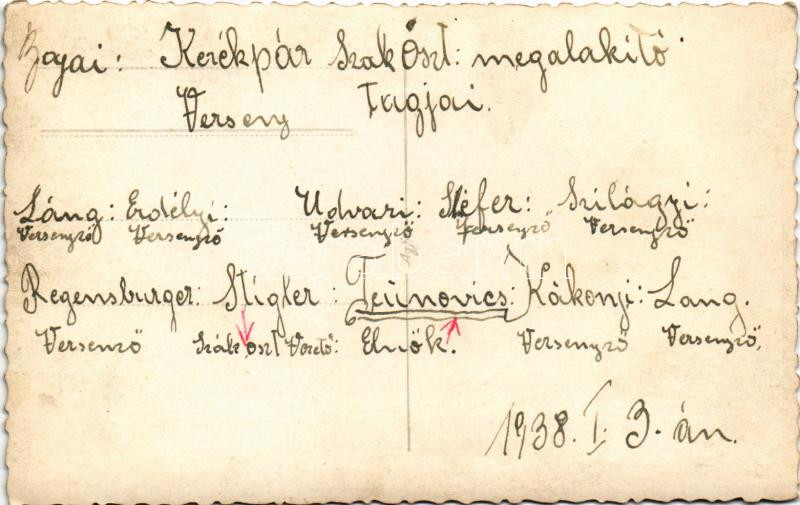 Bajai: Kerékpár Szak Oszt: megalakitó
Verseny Tagjai.
Láng: Erdélyi: Udvari: Stéfer: Szilágyi:
Versenyző Versenyző Versenyző Versenyző Versenyző
Regensburger: Stigler: Teünovics: Kákonyi: Lang.
Versenző Szák oszt Vezető: Elnők. Versenyző Versenyző,
1938. I. 3-án.